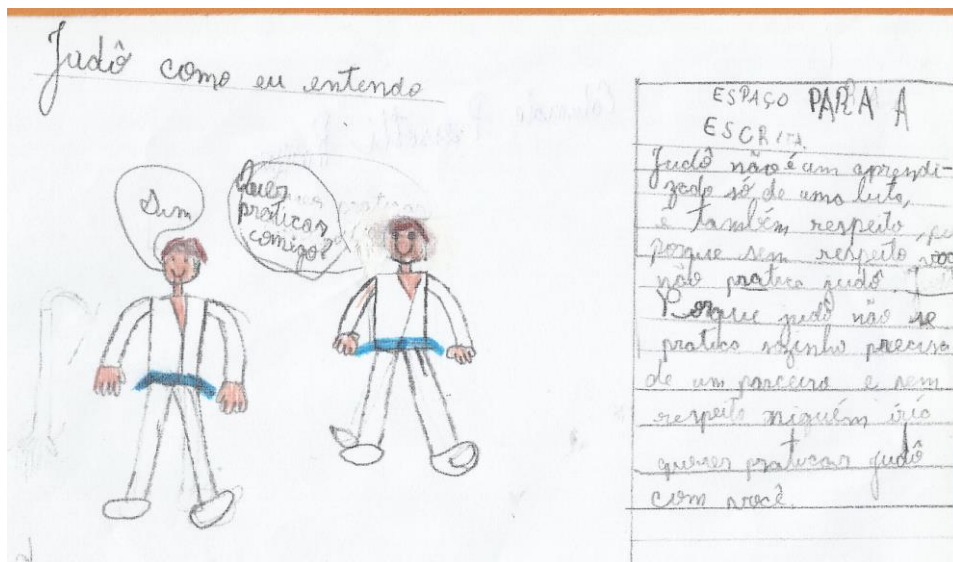 Judô como eu entendo
Sim
Quer
praticar
comigo?
ESPAÇO PARA A
ESCRITA
Judô não é um aprendi-
zado só de uma luta,
e também respeito,
porque sem respeito você
não pratica judô
Porque judô não se
pratica sozinho precisa
de um parceiro e sem
respeito niguém iria
querer praticar judô
com você.